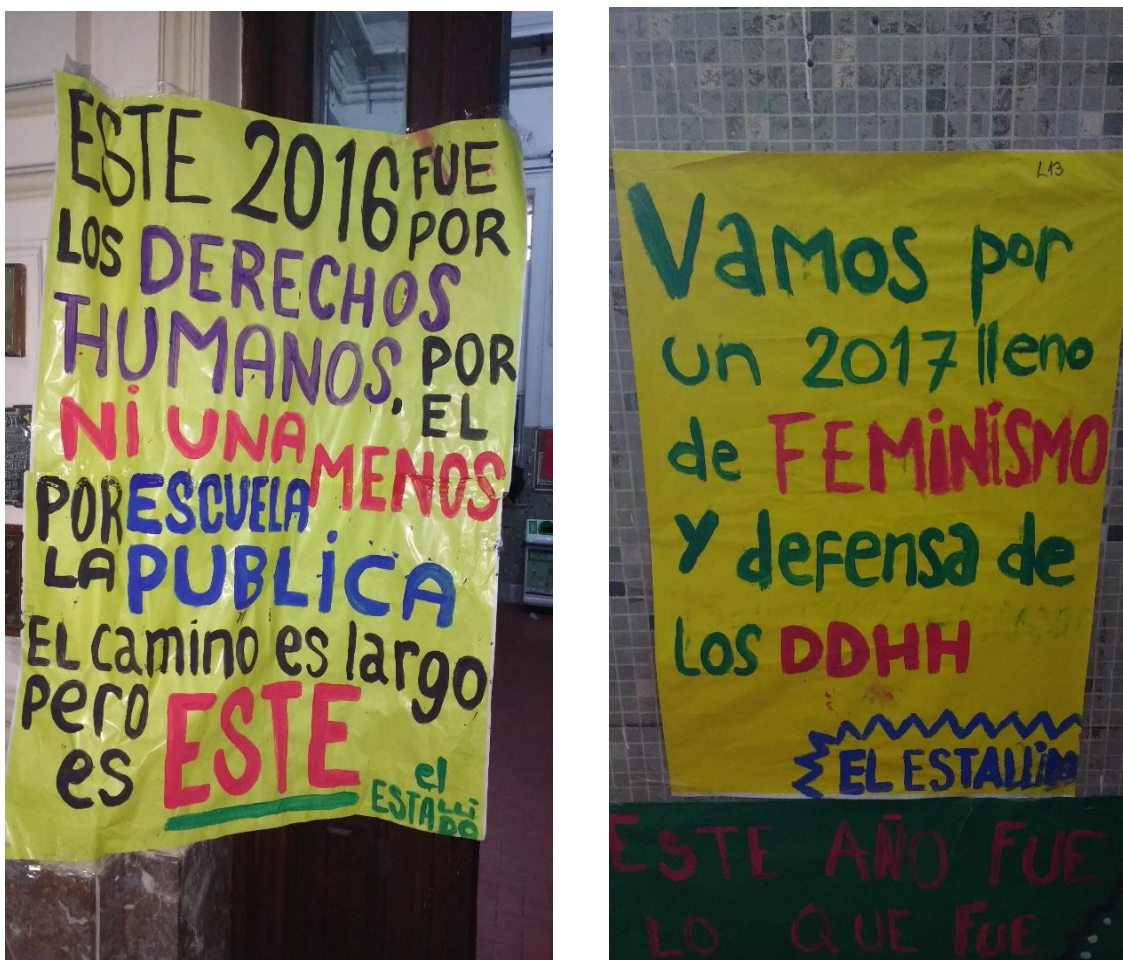 ESTE 2016 FUE
LOS DERECHOS POR
HUMANOS, POR
NI UNA EL
MENOS
POR ESCUELA
LA PUBLICA
EL camino es largo
pero ESTE
es
el
ESTALLI
DO
L13
Vamos por
un 2017 lleno
de FEMINISMO
Y defensa de
los DDHH
EL ESTALLIDO
ESTE AÑO FUE
LO QUE FUE